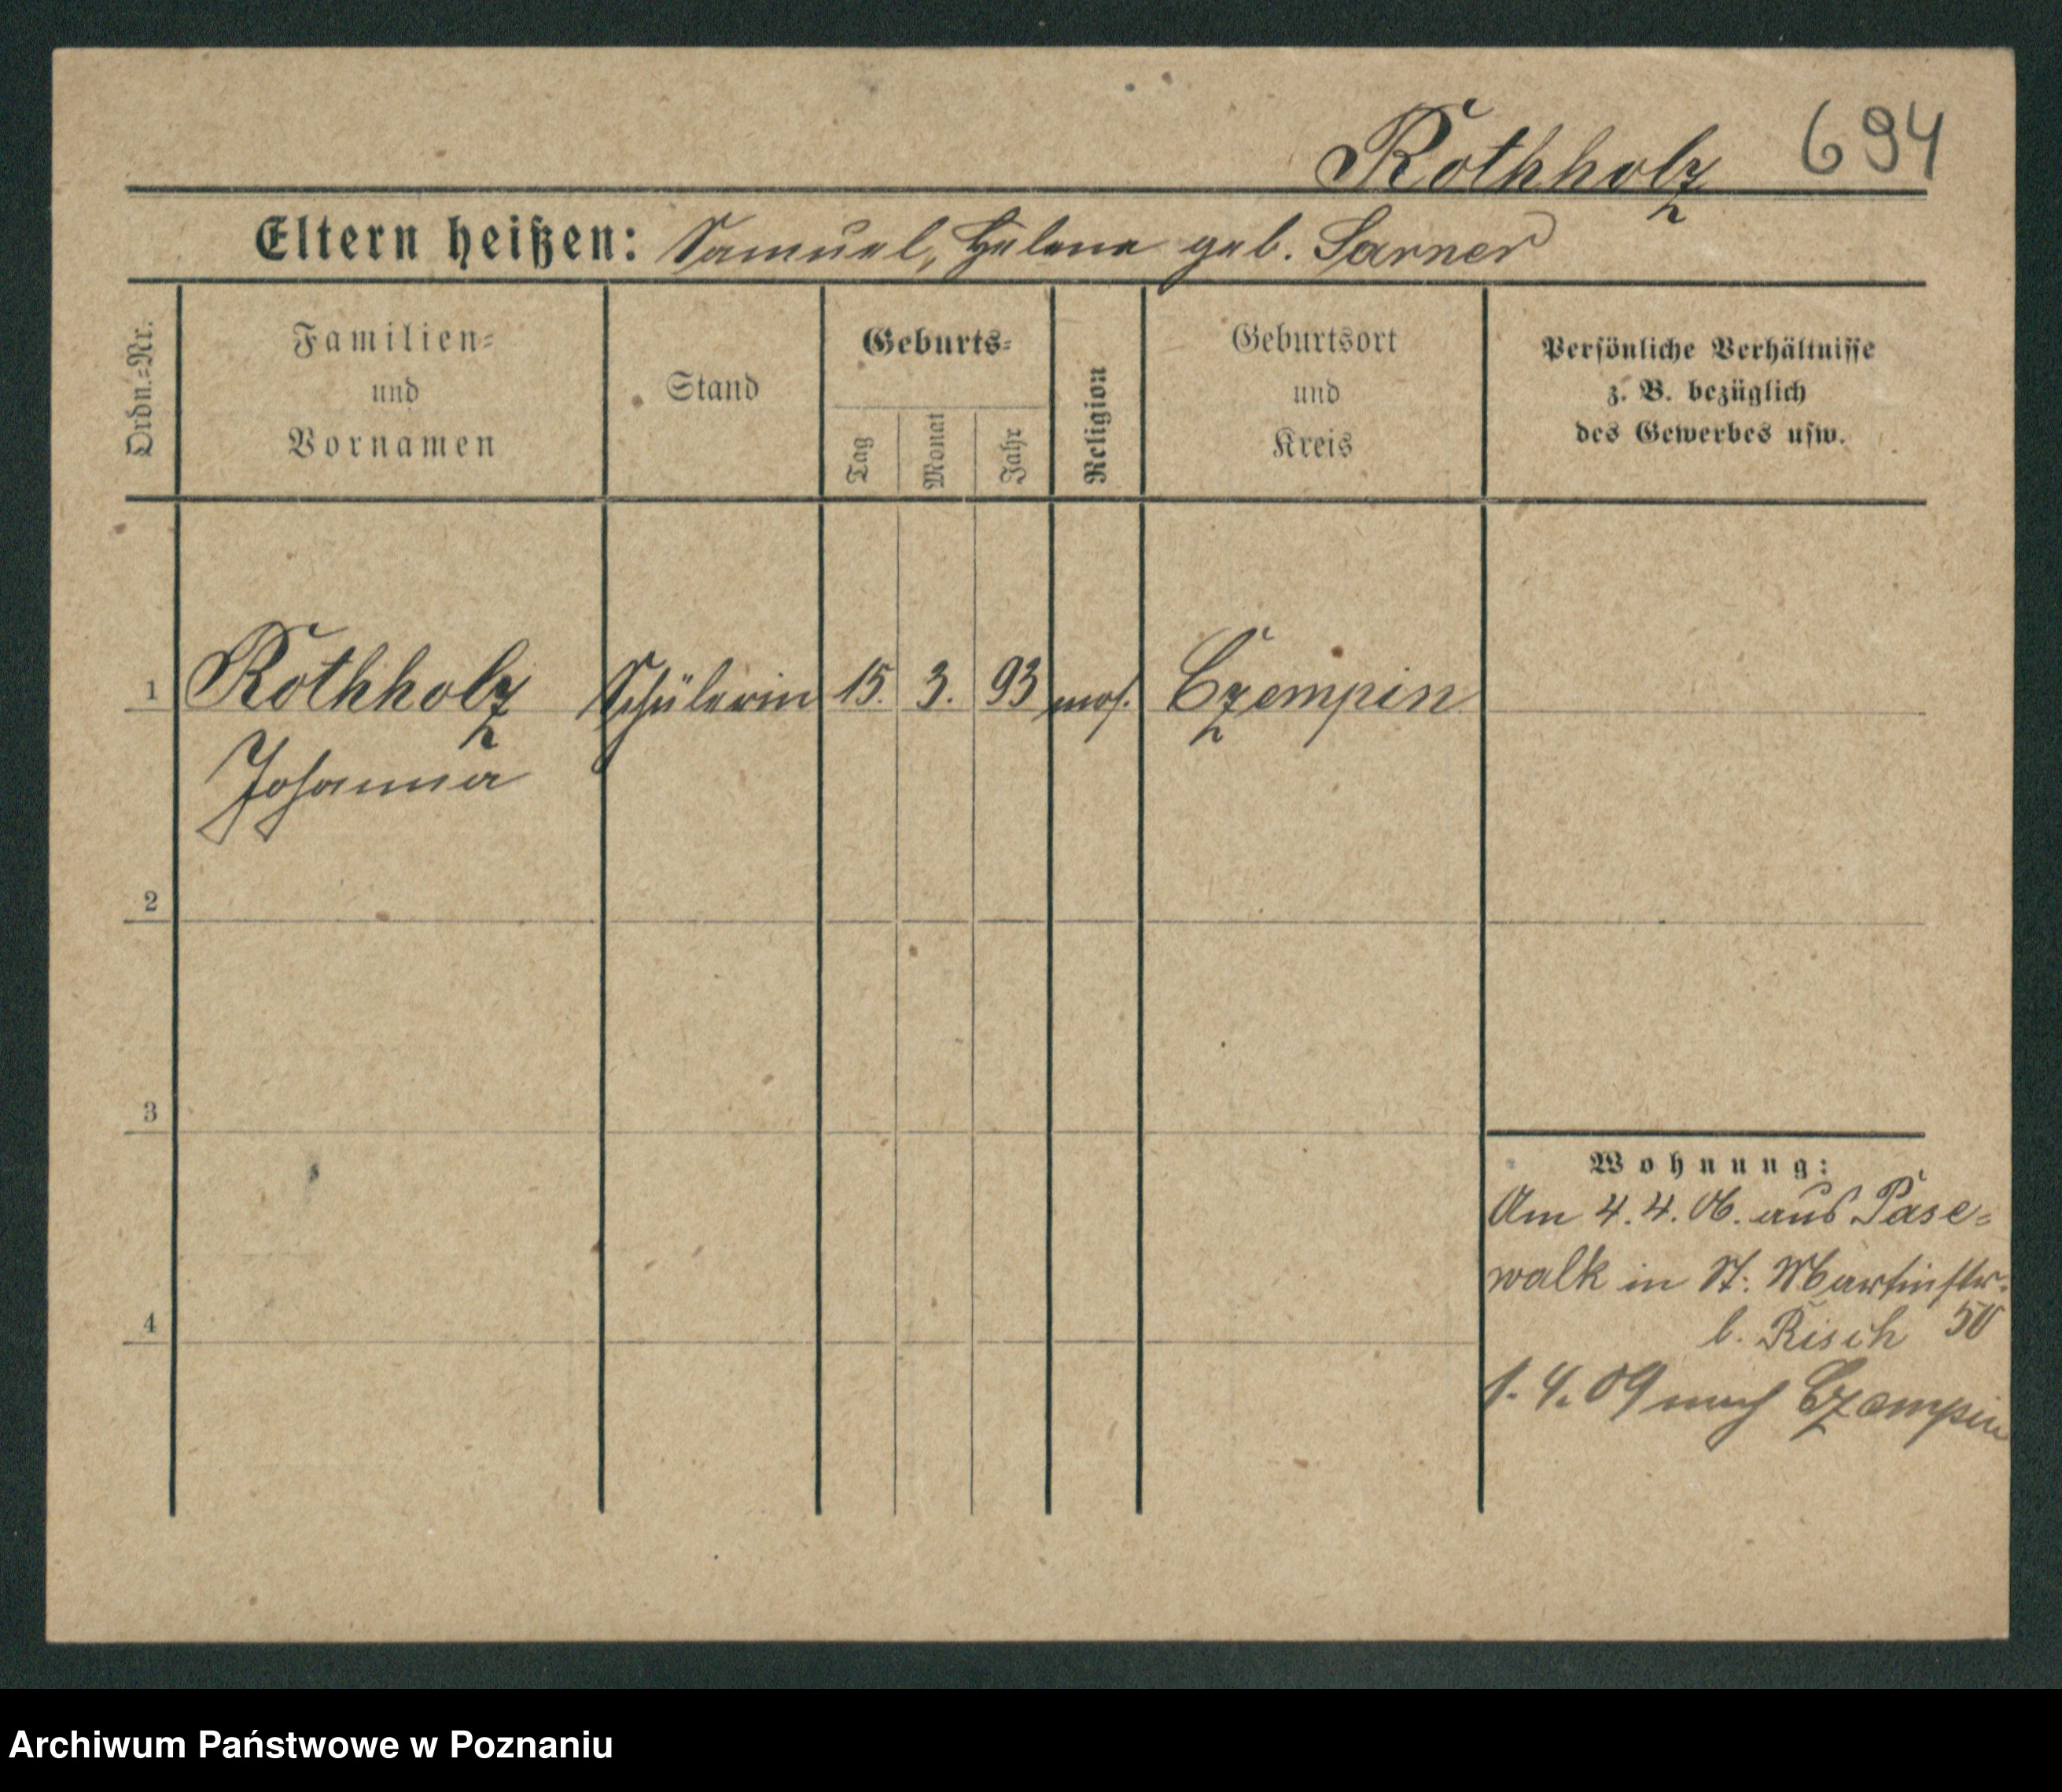 Rothholz 694
Eltern heißen: Samuel, Helene geb. Sarner
Ordn.=Nr.
Familien=
und
Vornamen
Stand
Geburts=
Tag
Monat
Jahr
Religion
Geburtsort
und
Kreis
Persönliche Verhältnisse
z. B. bezüglich
des Gewerbes usw.
1 Rothholz Schülerin 15. 3. 93 mos. Czempin
Johanna
2
3
4
Wohnung:
Am 4.4.06. aus Pase=
walk in St. Martinstr.
b. Risch 50
1.4.09 nach Czempin
Archiwum Państwowe w Poznaniu